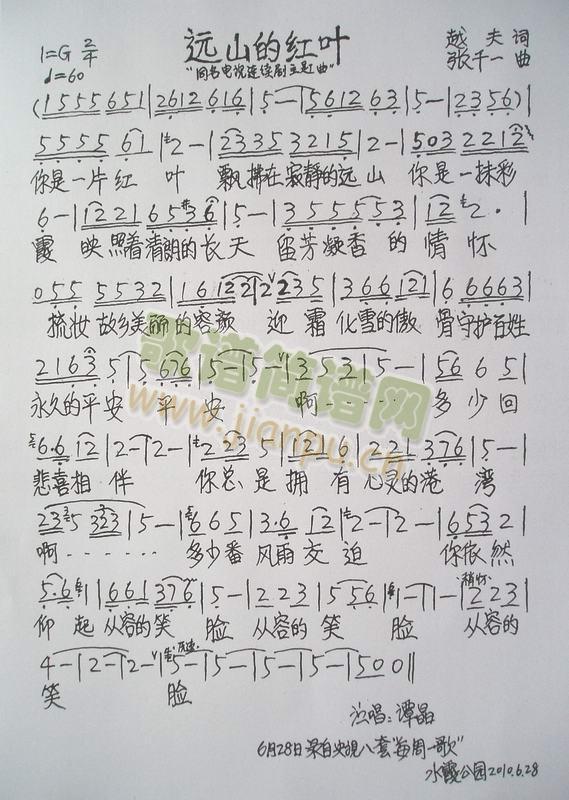 远山的红叶
"同名电视连续剧主题曲"
1=G 2/4
♩=60
越夫 词
张千一 曲
(1555651|2612616|5-|561263|5-|2356)|
5555 61|2-|23353215|2-|503 2212|
你是一片红 叶 飘拂在寂静的远山 你是一抹彩
6-|1221 6536|5-|355553|12 2·|
霞 映照着清朗的长天 留芳凝香的情怀
055 5532|161221|2 235|366 121|6 6663|
梳妆故乡美丽的容颜 迎霜化雪的傲骨守护百姓
2163 5|5 676|5-|5-|3 53|5-|56 6 5|
永久的平安 平 安 啊······ 多少回
6·6 12|2-|2-|2 23 5|1216|221 376|5-|
悲喜相伴 你总是拥有心灵的港湾
235 323|5-|665|3·6 12|2-|2-|653 2|
啊······ 多少番风雨交迫 你依然
5·6 1|661 376|5-|223|5 56|1-|1-|223|
稍怀
仰起从容的笑脸 从容的笑脸 从容的
4-|2-|2-|5-|5-|5-|5-|500‖
笑 脸
演唱:谭晶
6月28日录自央视八套"每周一歌"
水霞公园2010.6.28
歌谱简谱网
www.jianpu.cn